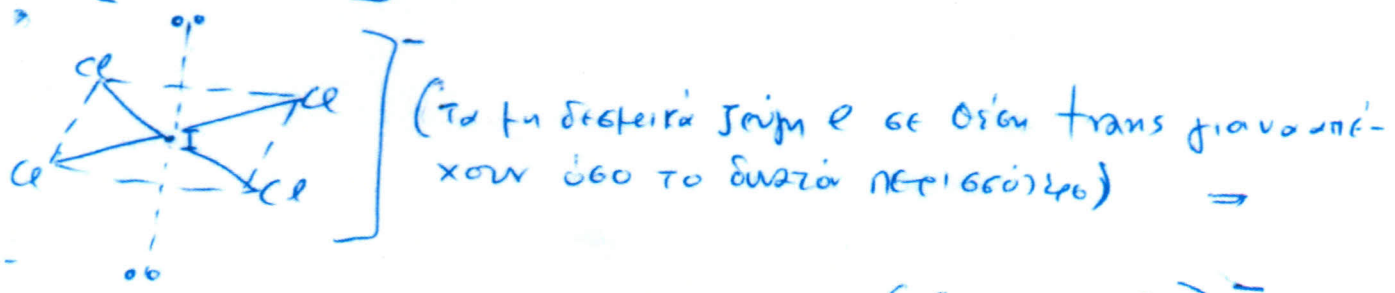 Cl
Cl
I
Cl
Cl
] -
(Τα μη δεσμικά ζεύγη e σε θέση trans για να απέ-
χουν όσο το δυνατό περισσότερο) =